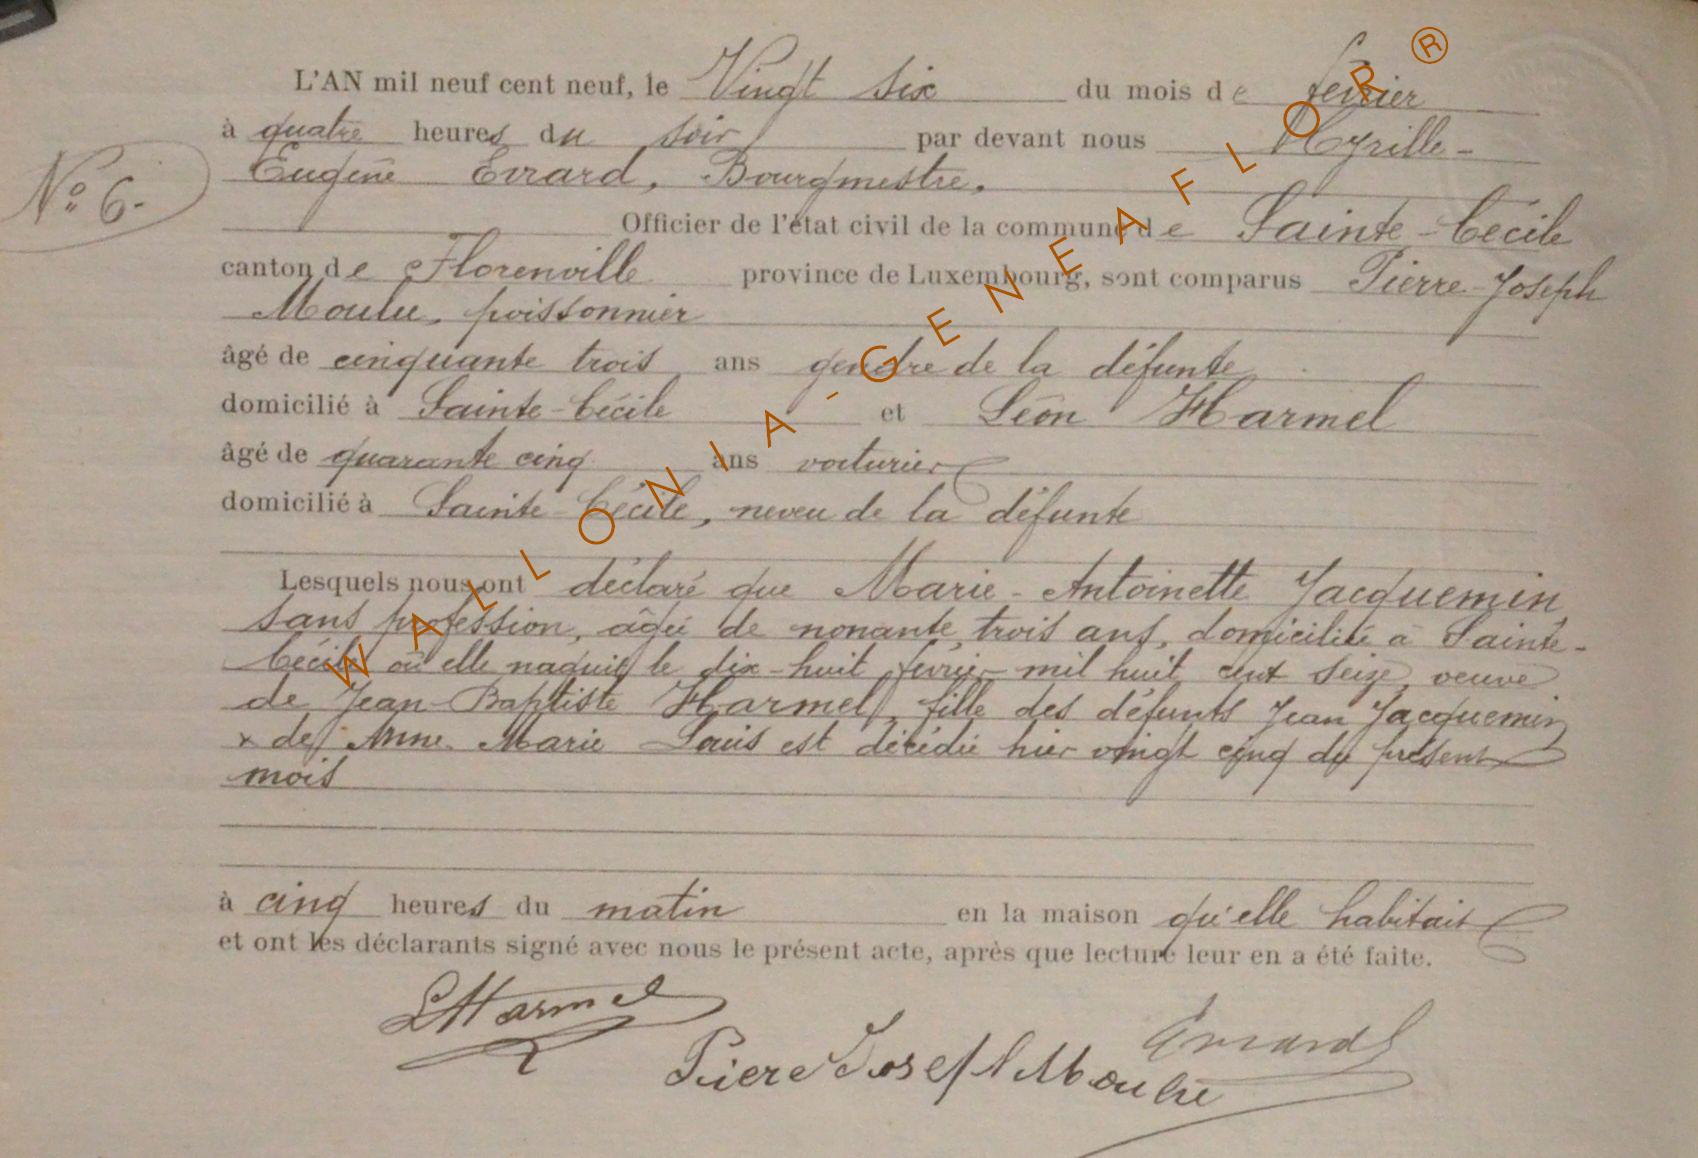 L'AN mil neuf cent neuf, le Vingt six du mois de février
à quatre heures du soir par devant nous Myrille-
N° 6.
Eugène Evrard, Bourgmestre,
Officier de l'état civil de la commune de Sainte-Cécile
canton de Florenville province de Luxembourg, sont comparus Pierre-Joseph
Moulu, poissonnier
âgé de cinquante trois ans gendre de la défunte
domicilié à Sainte-Cécile et Léon Harmel
âgé de quarante cinq ans voiturier
domicilié à Sainte-Cécile, neveu de la défunte
Lesquels nous ont déclaré que Marie-Antoinette Jacquemin
sans profession, âgée de nonante trois ans, domiciliée à Sainte-
Cécile où elle naquit le dix-huit février mil huit cent seize, veuve
de Jean-Baptiste Harmel, fille des défunts Jean Jacquemin
& de Anne Marie Louis est décédée hier vingt cinq du présent
mois
à cinq heures du matin en la maison qu'elle habitait
et ont les déclarants signé avec nous le présent acte, après que lecture leur en a été faite.
LHarmel
Evrard
Piere Joseph Moulu
WALLONIA-GENEAFLOR®